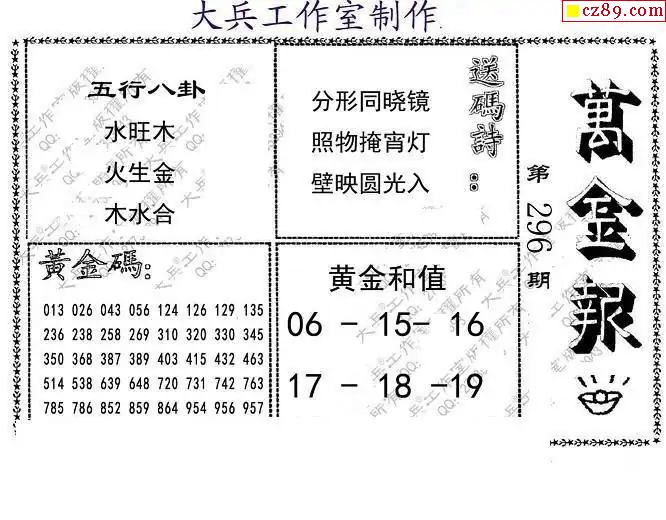 大兵工作室制作
cz89.com
五行八卦
水旺木
火生金
木水合
送碼詩:
分形同晓镜
照物掩宵灯
壁映圆光入
萬金報
第296期
黃金碼:
013 026 043 056 124 126 129 135
236 238 258 269 310 320 330 345
350 368 387 389 403 415 432 463
514 538 639 648 720 731 742 763
785 786 852 859 864 954 956 957
黄金和值
06 - 15- 16
17 - 18 -19